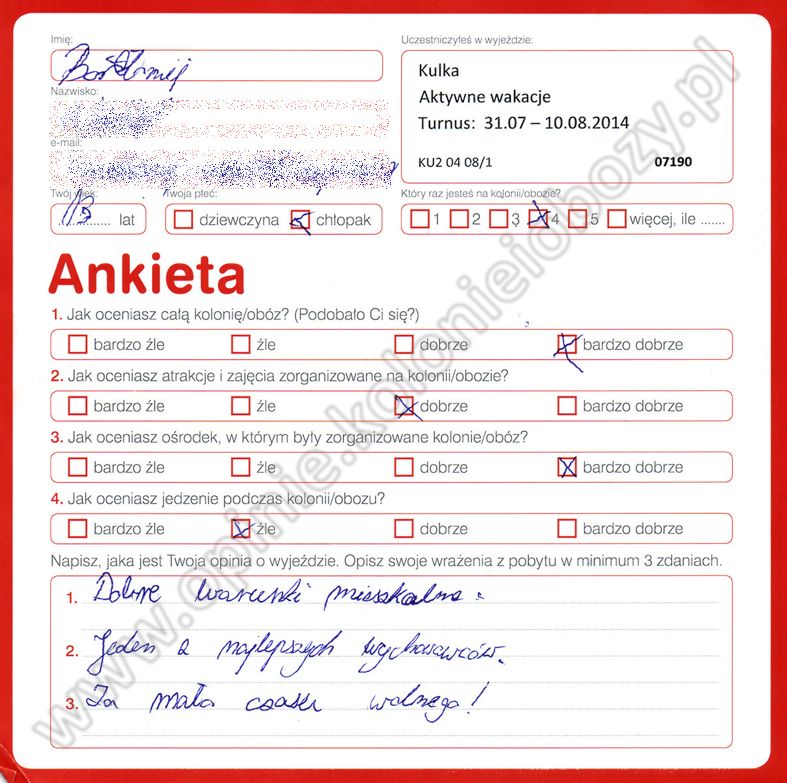 Imię:
Bartłomiej
Uczestniczyłeś w wyjeździe:
Kulka
Aktywne wakacje
Turnus: 31.07 – 10.08.2014
KU2 04 08/1 07190
Nazwisko:
e-mail:
Twój wiek:
13 lat
Twoja płeć:
dziewczyna chłopak
Który raz jesteś na kolonii/obozie?
1 2 3 4 5 więcej, ile .......
Ankieta
1. Jak oceniasz całą kolonię/obóz? (Podobało Ci się?)
bardzo źle źle dobrze bardzo dobrze
2. Jak oceniasz atrakcje i zajęcia zorganizowane na kolonii/obozie?
bardzo źle źle dobrze bardzo dobrze
3. Jak oceniasz ośrodek, w którym były zorganizowane kolonie/obóz?
bardzo źle źle dobrze bardzo dobrze
4. Jak oceniasz jedzenie podczas kolonii/obozu?
bardzo źle źle dobrze bardzo dobrze
Napisz, jaka jest Twoja opinia o wyjeździe. Opisz swoje wrażenia z pobytu w minimum 3 zdaniach.
1. Dobre warunki mieszkalne.
2. Jeden z najlepszych wychowawców.
3. Za mało czasu wolnego!
www.opinie.kolonieiobozy.pl